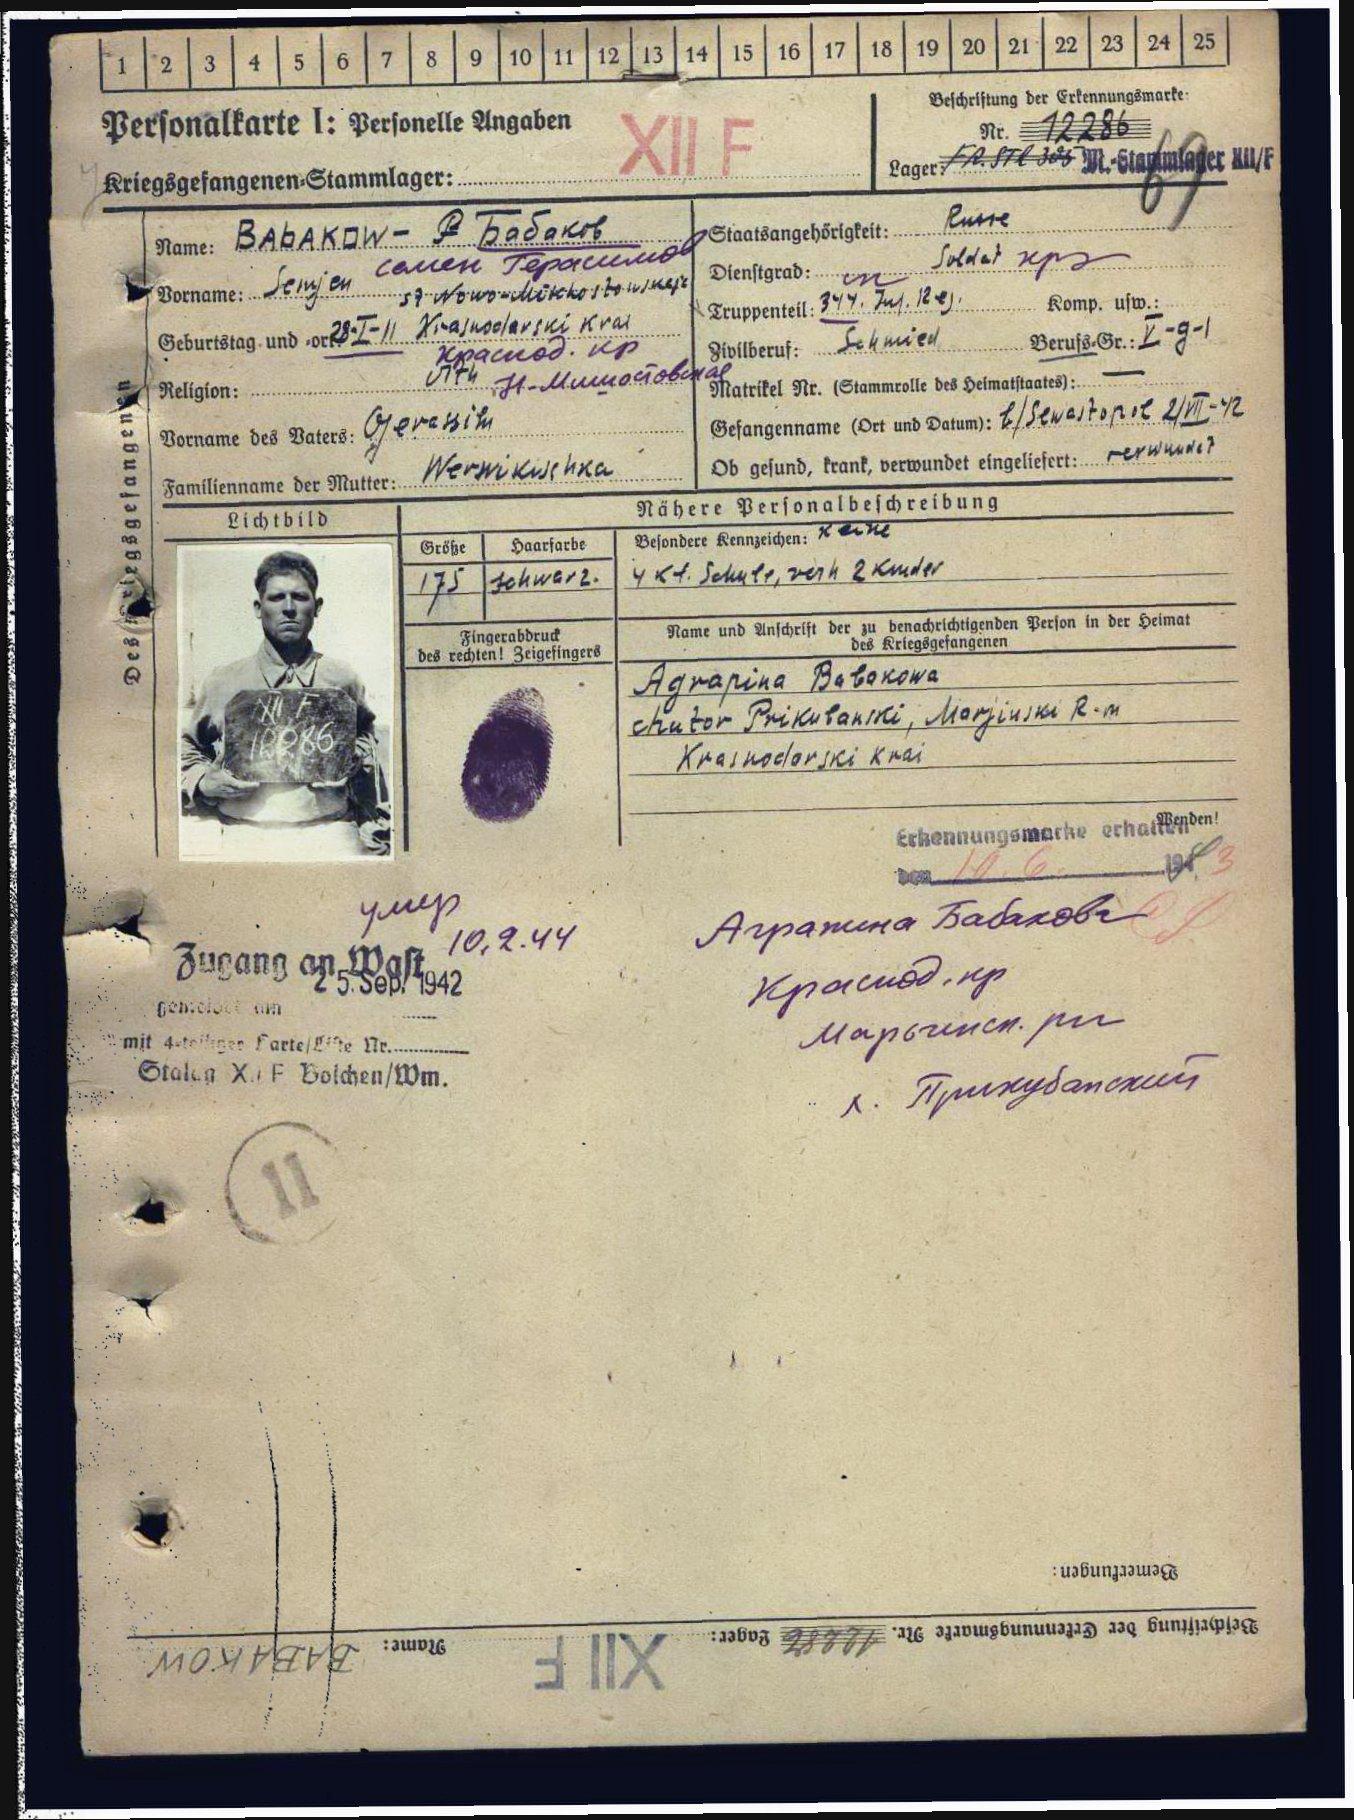 1 2 3 4 5 6 7 8 9 10 11 12 13 14 15 16 17 18 19 20 21 22 23 24 25
Personalkarte I: Personelle Angaben
XII F
Kriegsgefangenen-Stammlager:
Beschriftung der Erkennungsmarke:
Nr. 12286
Lager: M.-Stammlager XII/F
69
Des Kriegsgefangenen
Name: BABAKOW – Бабаков
Семен Герасимов
Vorname: Semjen
st Nowo-Mischostowskaja
Geburtstag und -ort: 28-I-11 Krasnodarski Krai
Краснод. кр
Religion: Н-Мишостовская
Vorname des Vaters: Gerassim
Familienname der Mutter: Wernikuschka
Staatsangehörigkeit: Russe
Dienstgrad: Soldat
Truppenteil: 344. Inf. Reg. Komp. usw.:
Zivilberuf: Schmied Berufs-Gr.: V-g-1
Matrikel Nr. (Stammrolle des Heimatstaates): —
Gefangenname (Ort und Datum): b/Sewastopol 2/VII-42
Ob gesund, krank, verwundet eingeliefert: verwundet
Lichtbild
Nähere Personalbeschreibung
Größe Haarfarbe Besondere Kennzeichen: keine
175 schwarz. 4 Kl. Schule, verh 2 Kinder
Fingerabdruck
des rechten! Zeigefingers
Name und Anschrift der zu benachrichtigenden Person in der Heimat
des Kriegsgefangenen
Agrapina Babakowa
chutor Prikubanski, Marjinski R-n
Krasnodarski Krai
XII F
12286
Wenden!
Erkennungsmarke erhalten
den 10. 6. 1943
умер
10.2.44
Zugang an Wast
25. Sep. 1942
gemeldet am
mit 4-teiliger Karte/Liste Nr.
Stalag XII F Bolchen/Wm.
Аграпина Бабакова
Краснод. кр
Марьинск. рн
х. Прикубанский
11
Bemerkungen:
Beschriftung der Erkennungsmarke Nr. 12286 Lager: XII F Name: BABAKOW